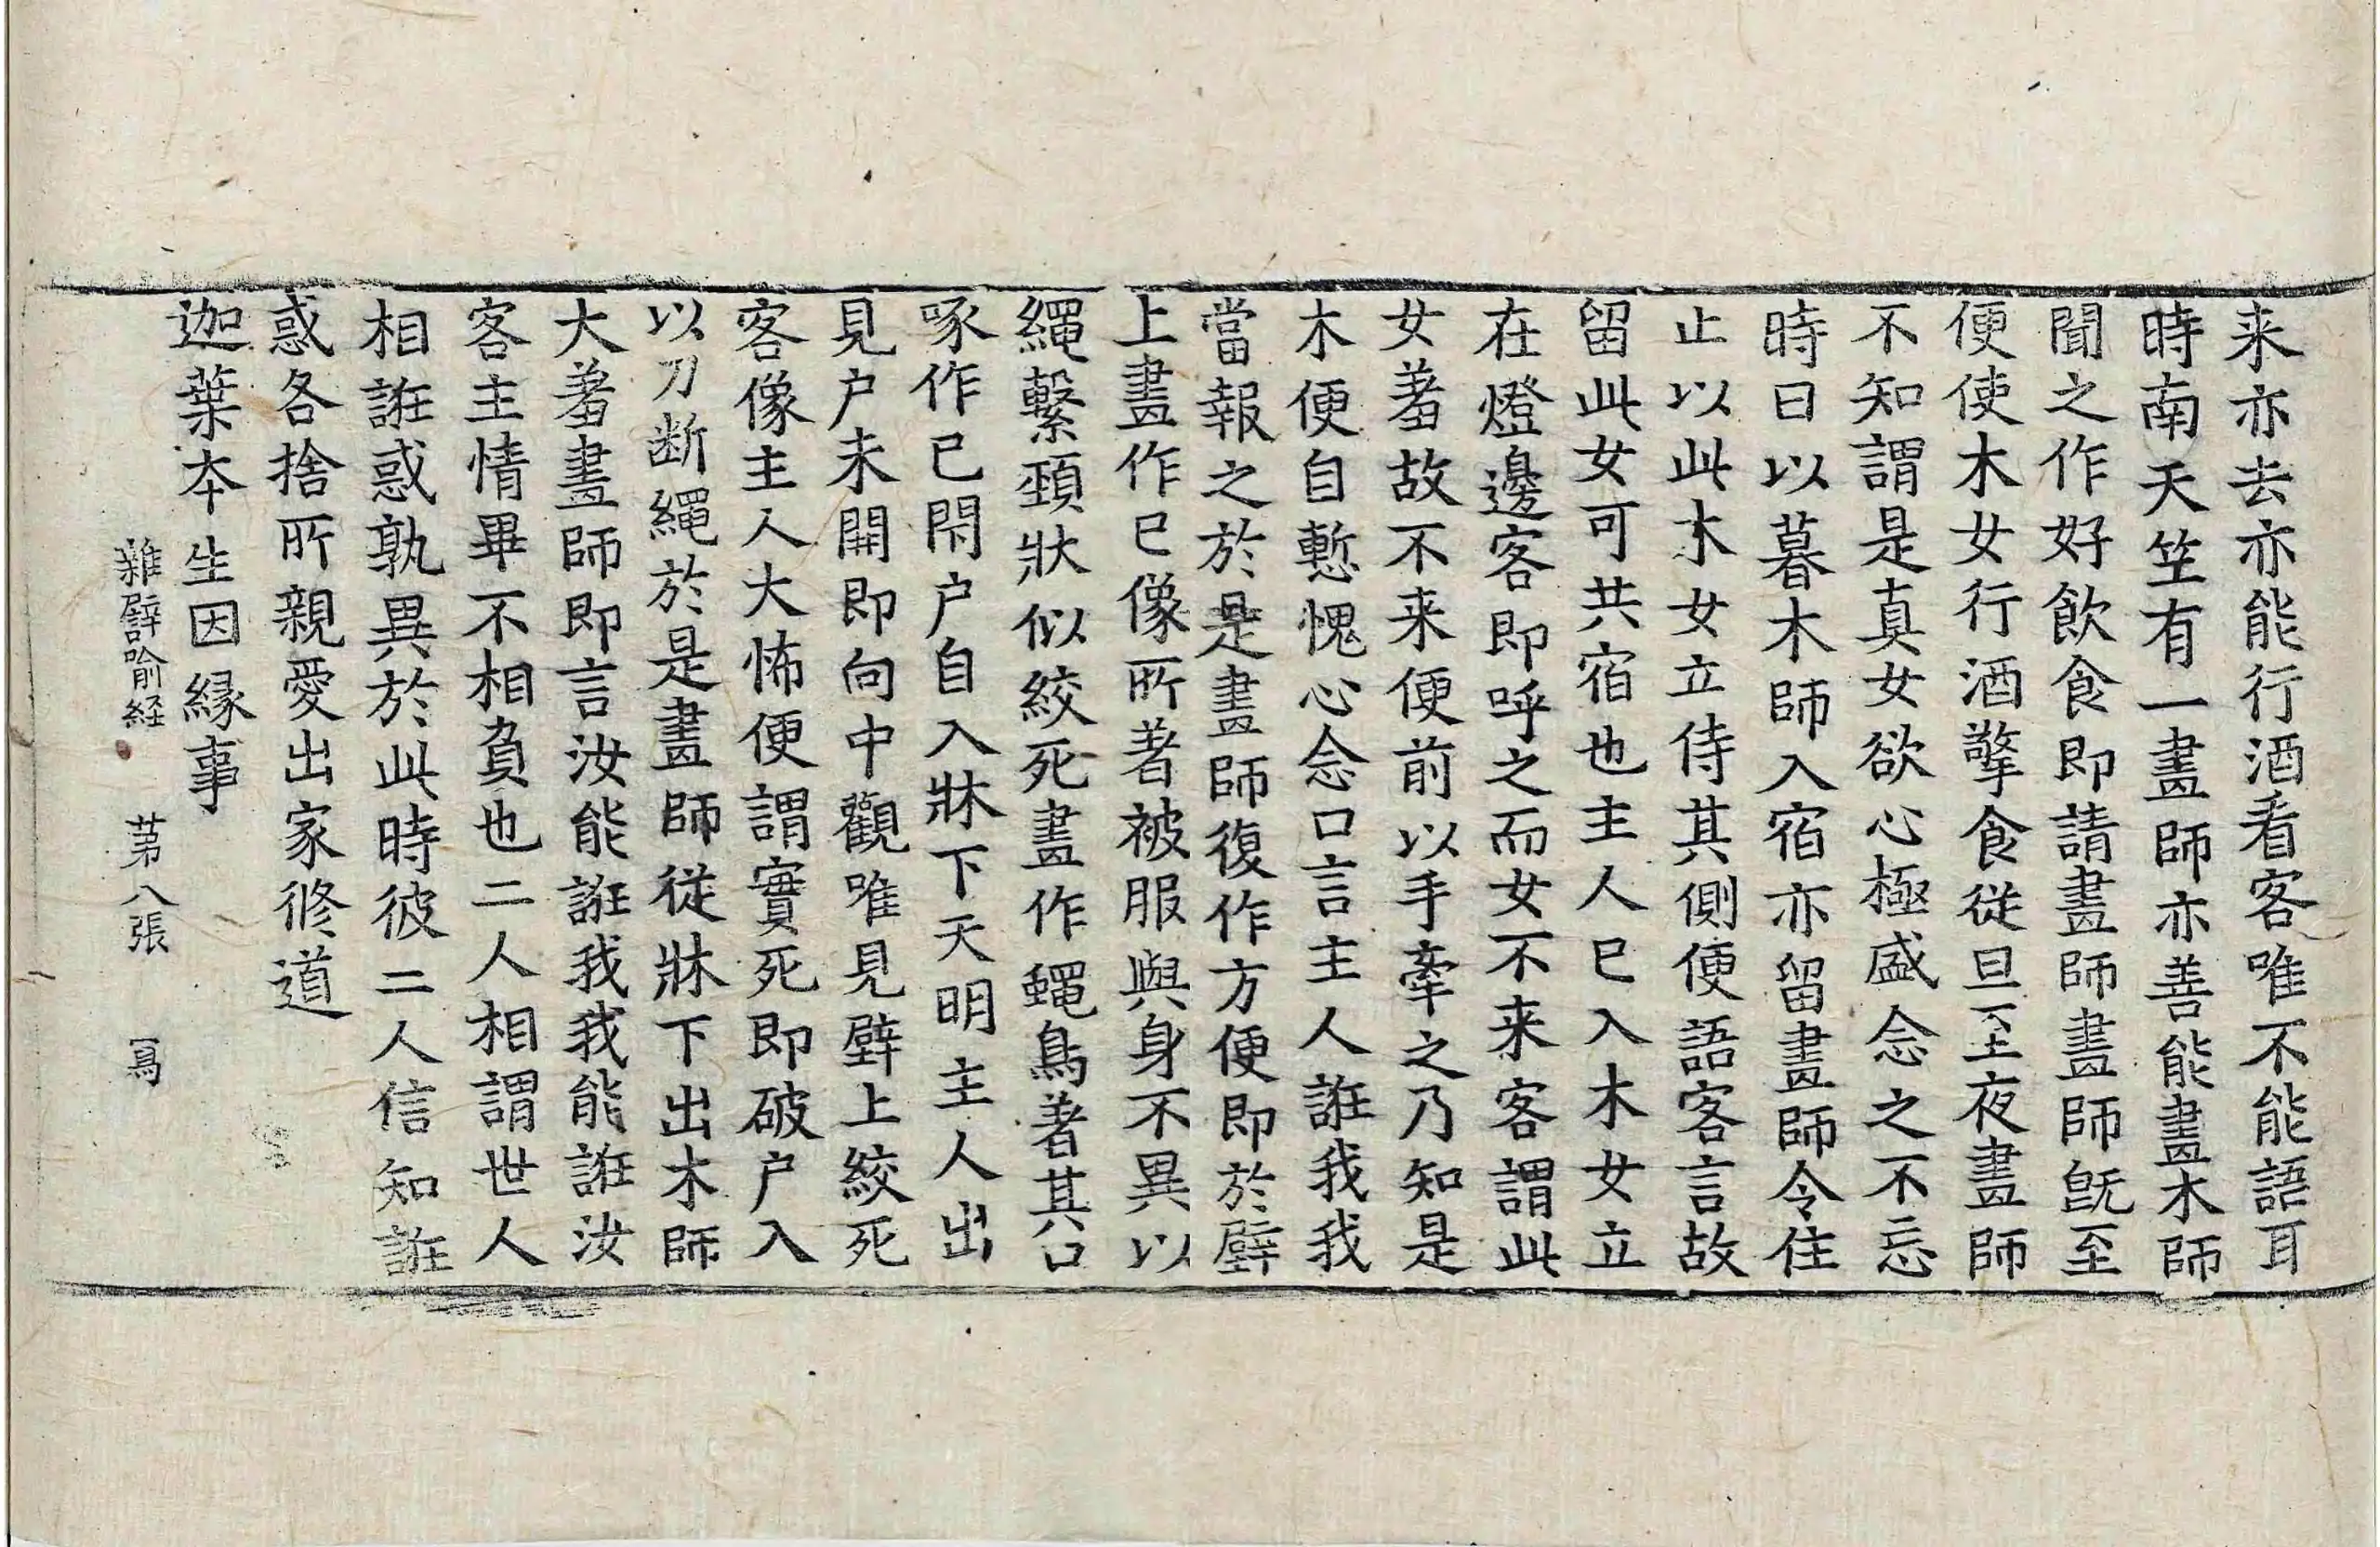 来亦去亦能行酒看客唯不能語耳
時南天竺有一畫師亦善能畫木師
聞之作好飲食即請畫師畫師旣至
便使木女行酒擎食從旦至夜畫師
不知謂是真女欲心極盛念之不忘
時日以暮木師入宿亦留畫師令住
止以此木女立侍其側便語客言故
留此女可共宿也主人已入木女立
在燈邊客即呼之而女不来客謂此
女羞故不来便前以手牽之乃知是
木便自慙愧心念口言主人誑我我
當報之於是畫師復作方便即於壁
上畫作已像所著被服與身不異以
繩繫頸狀似絞死畫作蠅鳥著其口
啄作已閇户自入牀下天明主人出
見户未開即向中觀唯見壁上絞死
客像主人大怖便謂實死即破户入
以刀断繩於是畫師從牀下出木師
大羞畫師即言汝能誑我我能誑汝
客主情畢不相負也二人相謂世人
相誑惑孰異於此時彼二人信知誑
惑各捨所親愛出家修道
迦葉本生因緣事
雜譬喻経 苐八張 寫